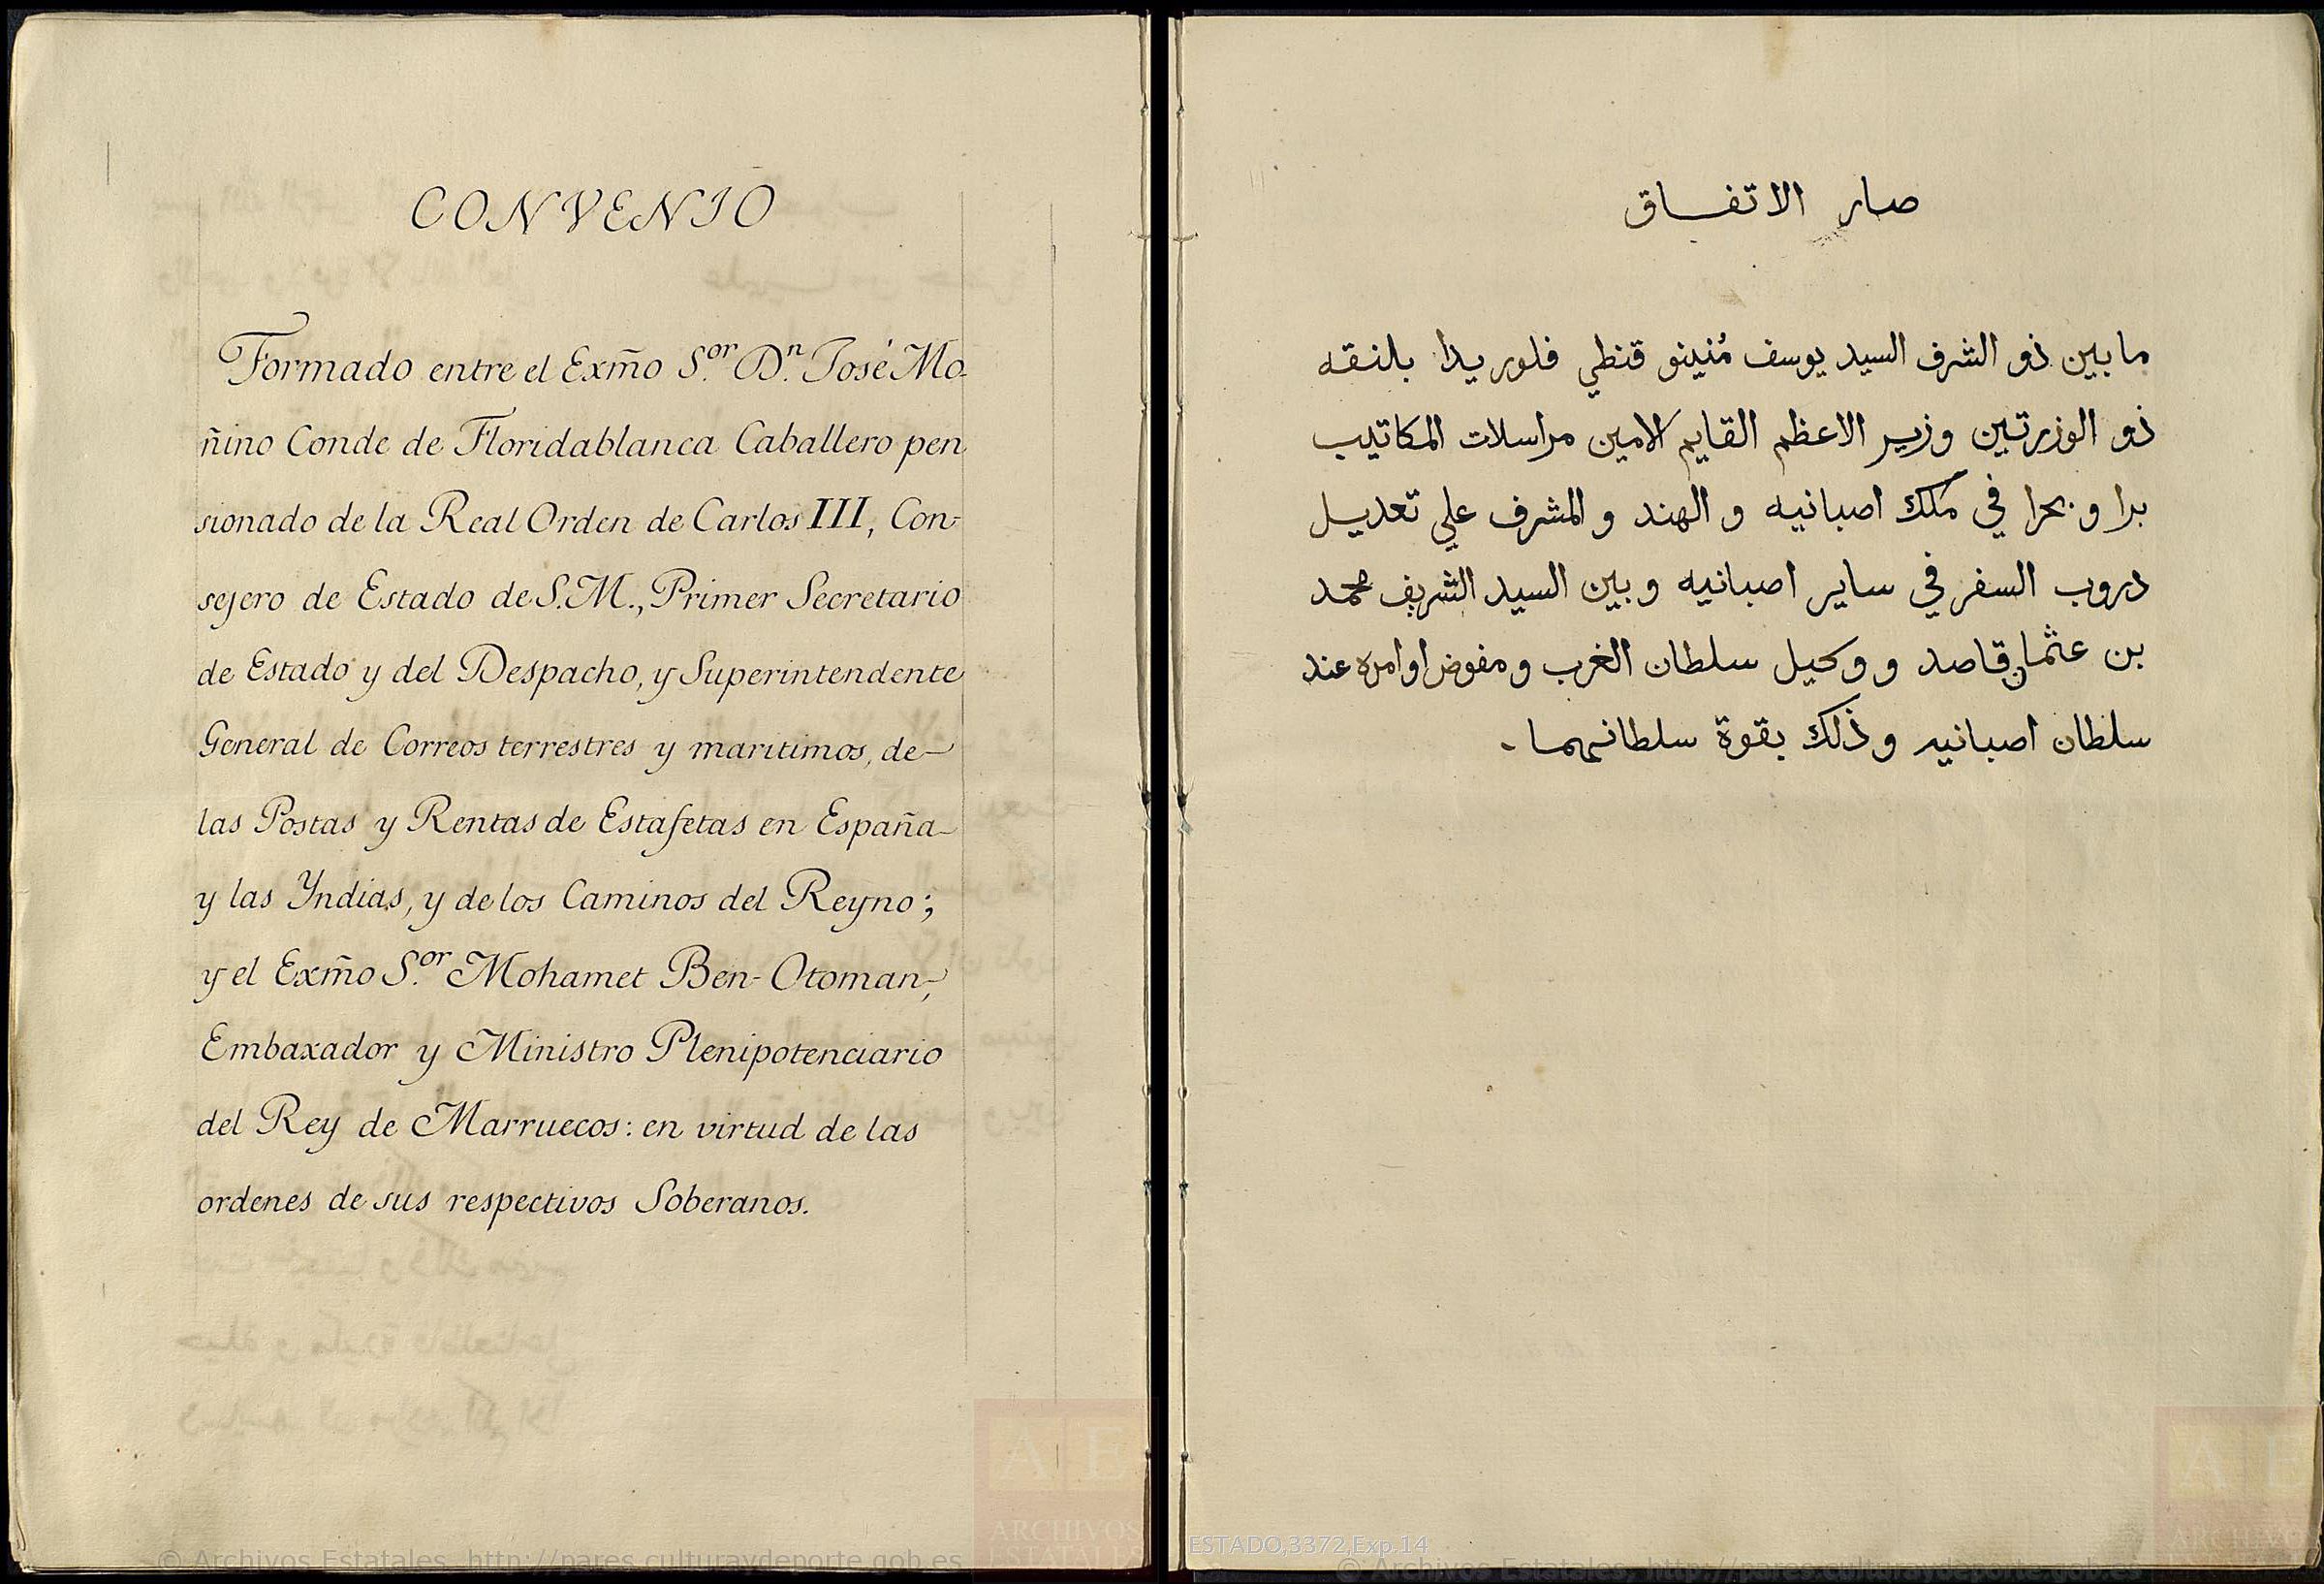 CONVENIO
Formado entre el Exm̃o S.or D.n José Mo-
ñino Conde de Floridablanca Caballero pen
sionado de la Real Orden de Carlos III, Con-
sejero de Estado de S.M., Primer Secretario
de Estado y del Despacho, y Superintendente
General de Correos terrestres y maritimos, de
las Postas y Rentas de Estafetas en España
y las Yndias, y de los Caminos del Reyno;
y el Exm̃o S.or Mohamet Ben-Otoman,
Embaxador y Ministro Plenipotenciario
del Rey de Marruecos: en virtud de las
ordenes de sus respectivos Soberanos.
صار الاتفاق
ما بين ذو الشرف السيد يوسف مُنينو قنطي فلوريدا بلنقه
ذو الوزرتين وزير الاعظم القايم الامين مراسلات المكاتيب
برا و بحرا في ملك اصبانيه و الهند و المشرف علي تعديل
دروب السفر في ساير اصبانيه و بين السيد الشريف محمد
بن عثمان قاصد و وكيل سلطان الغرب و مفوض اوامره عند
سلطان اصبانيه و ذلك بقوة سلطانهما
© Archivos Estatales, http://pares.culturaydeporte.gob.es
AE
ARCHIVOS
ESTATALES
ESTADO,3372,Exp.14
© Archivos Estatales, http://pares.culturaydeporte.gob.es